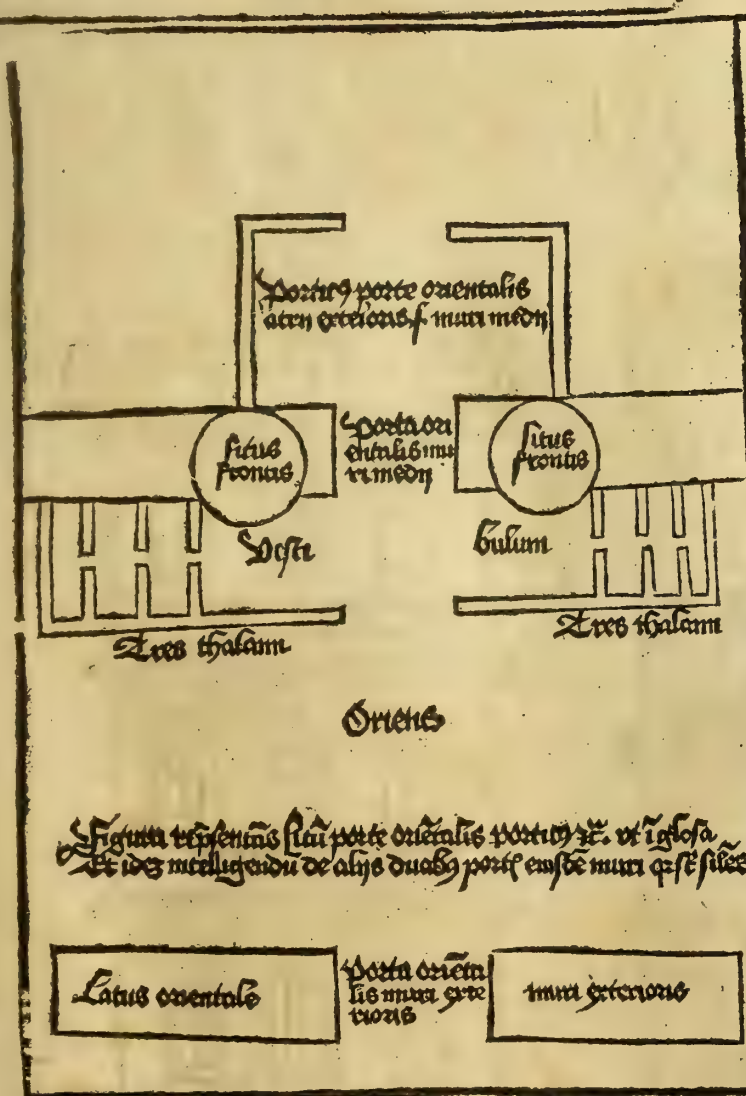 Porticꝰ porte orientalis
atrij exterioris .s. muri medij
situs
frontis
Porta ori
entalis mu
ri medij
situs
frontis
Vesti
bulum
Tres thalami
Tres thalami
Oriens
Figura rep̃sentãs sitũ porte oriẽtalis porticꝰ ⁊c̃. vt ĩ glosa
Et idez intelligendũ de alijs duabꝰ port eiusdẽ muri q̃ sũt siles
Latus orientale
porta oriẽta
lis muri exte
rioris
muri exterioris